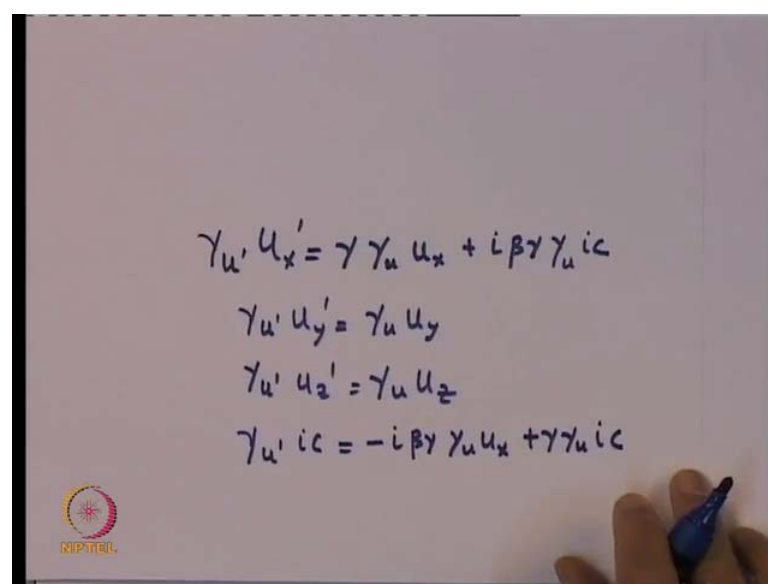 γ_u' u_x' = γ γ_u u_x + i β γ γ_u i c
γ_u' u_y' = γ_u u_y
γ_u' u_z' = γ_u u_z
γ_u' i c = - i β γ γ_u u_x + γ γ_u i c
NPTEL